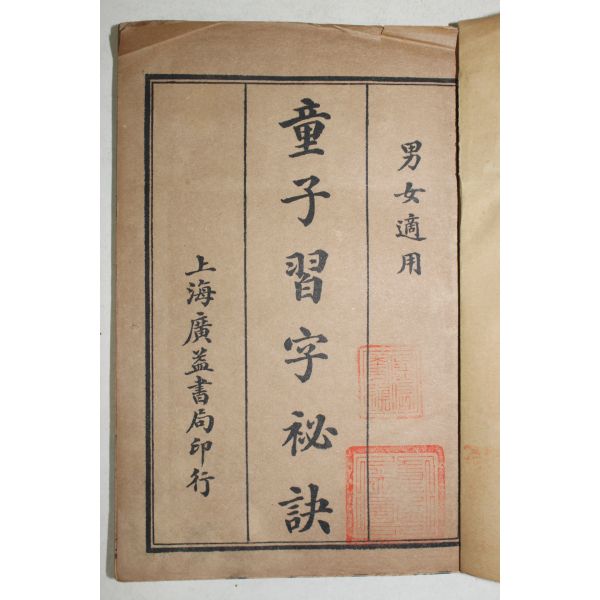 男女適用
童子習字祕訣
上海廣益書局印行